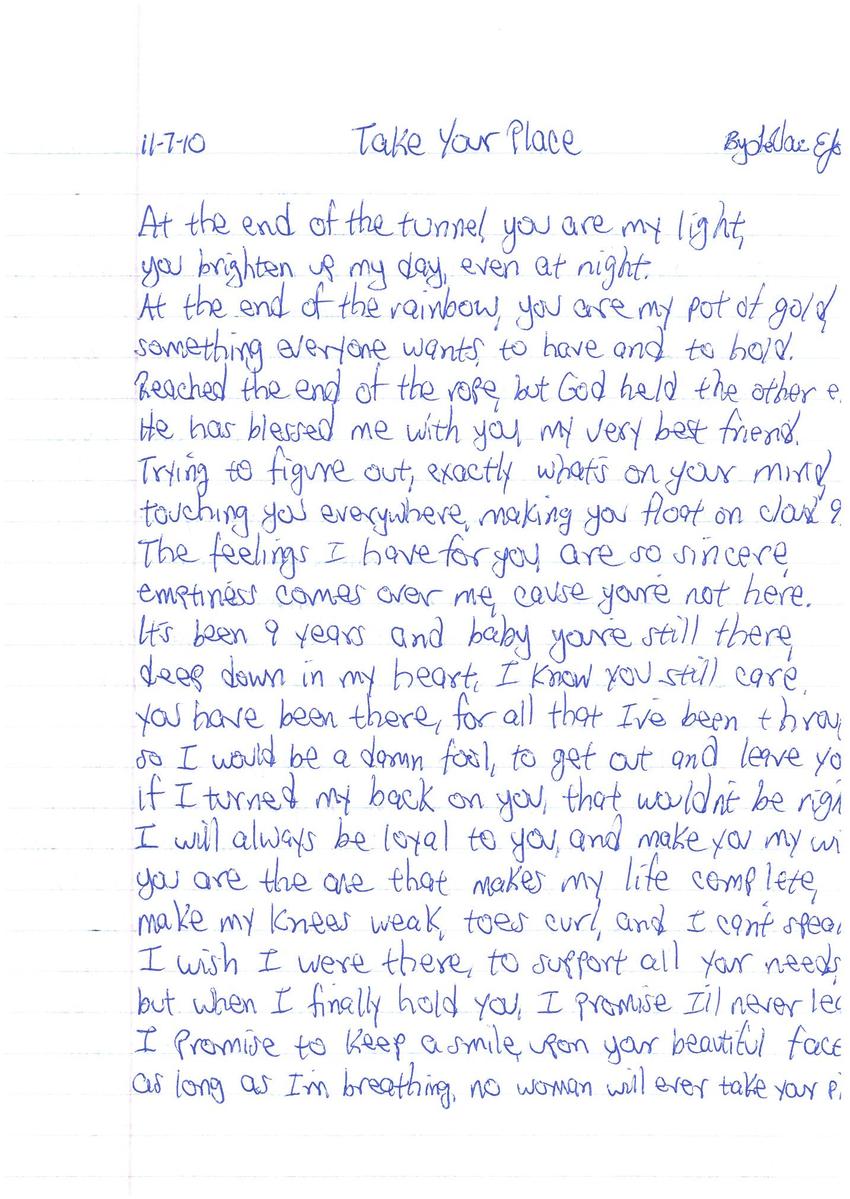 11-7-10 Take Your Place By
At the end of the tunnel, you are my light,
you brighten up my day, even at night.
At the end of the rainbow, you are my pot of gold,
something everyone wants, to have and to hold.
Reached the end of the rope, but God held the other e
He has blessed me with you, my very best friend.
Trying to figure out, exactly what's on your mind,
touching you everywhere, making you float on cloud 9
The feelings I have for you, are so sincere,
emptiness comes over me, cause you're not here.
It's been 9 years and baby you're still there,
deep down in my heart, I know you still care.
You have been there, for all that I've been throu
so I would be a damn fool, to get out and leave yo
if I turned my back on you, that wouldn't be righ
I will always be loyal to you, and make you my wi
you are the one that makes my life complete,
make my knees weak, toes curl, and I can't spea
I wish I were there, to support all your needs,
but when I finally hold you, I promise I'll never lea
I promise to keep a smile, upon your beautiful face
as long as I'm breathing, no woman will ever take your pl